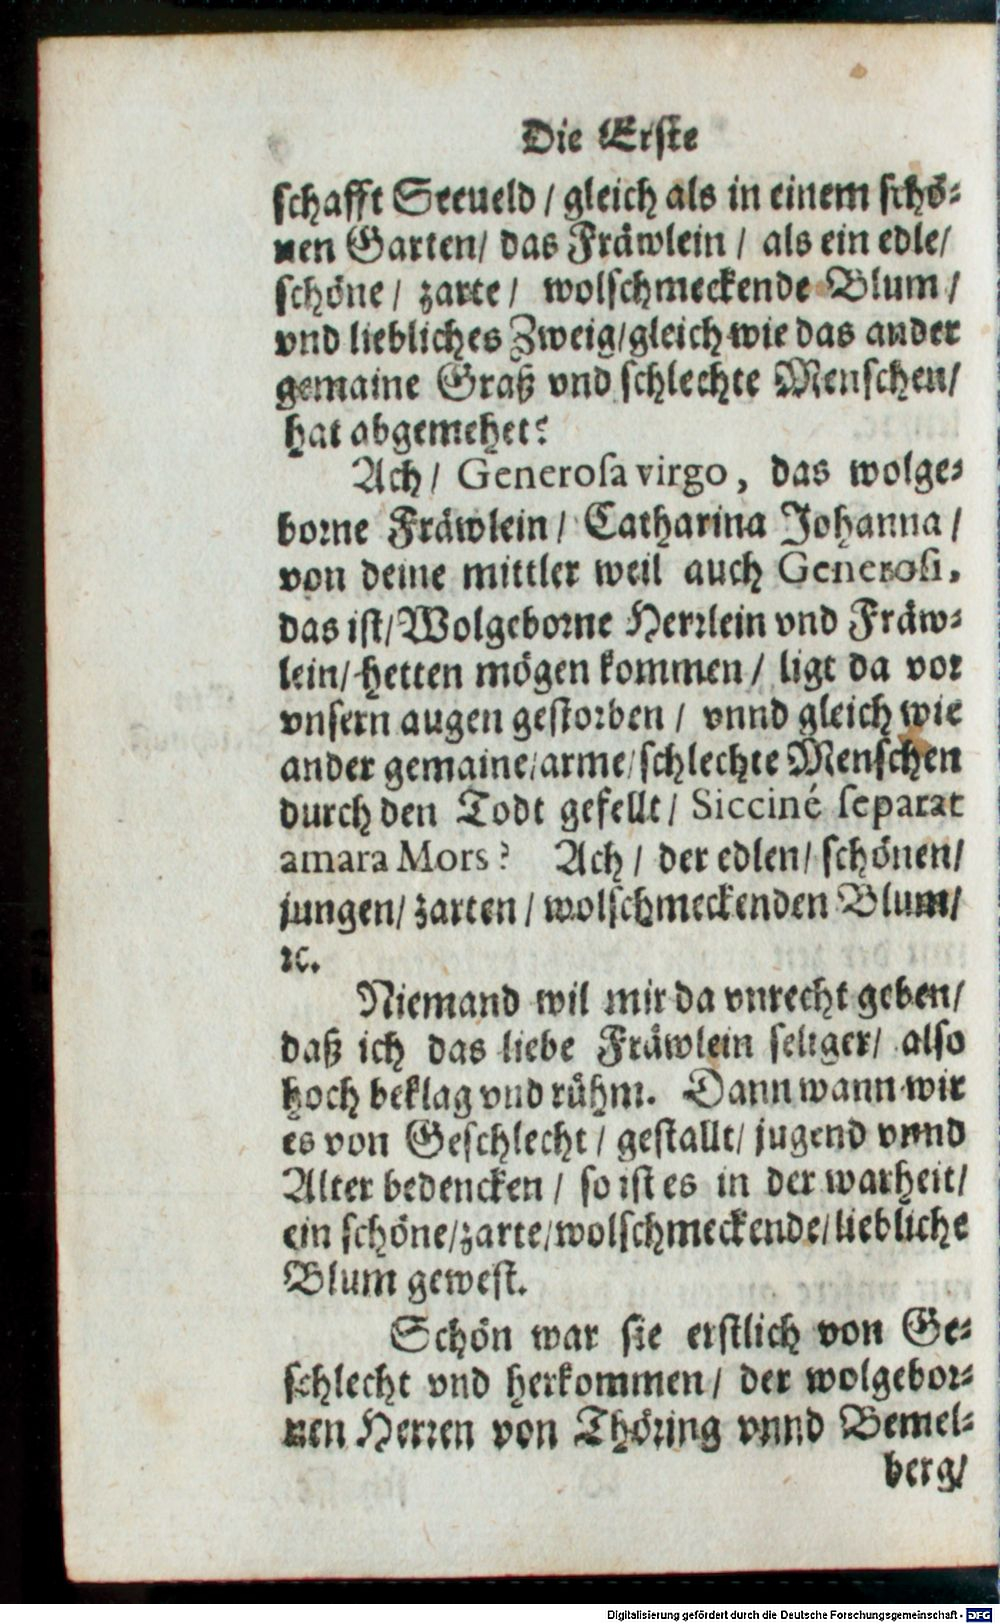 Die Erste
schafft Steueld / gleich als in einem schö-
nen Garten / das Fräwlein / als ein edle /
schöne / zarte / wolschmeckende Blum /
vnd liebliches Zweig / gleich wie das ander
gemaine Graß vnd schlechte Menschen /
hat abgemehet?
Ach / Generosa virgo, das wolge-
borne Fräwlein / Catharina Johanna /
von deme mittler weil auch Generosi,
das ist / Wolgeborne Herrlein vnd Fräw-
lein / hetten mögen kommen / ligt da vor
vnsern augen gestorben / vnnd gleich wie
ander gemaine / arme / schlechte Menschen
durch den Todt gefellt / Sicciné separat
amara Mors? Ach / der edlen / schönen /
jungen / zarten / wolschmeckenden Blum /
ꝛc.
Niemand wil mir da vnrecht geben /
daß ich das liebe Fräwlein seliger / also
hoch beklag vnd rühm. Dann wann wir
es von Geschlecht / gestallt / jugend vnnd
Alter bedencken / so ist es in der warheit /
ein schöne / zarte / wolschmeckende / liebliche
Blum gewest.
Schön war sie erstlich von Ge-
schlecht vnd herkommen / der wolgebor-
nen Herren von Thöring vnnd Bemel-
berg /
Digitalisierung gefördert durch die Deutsche Forschungsgemeinschaft - DFG